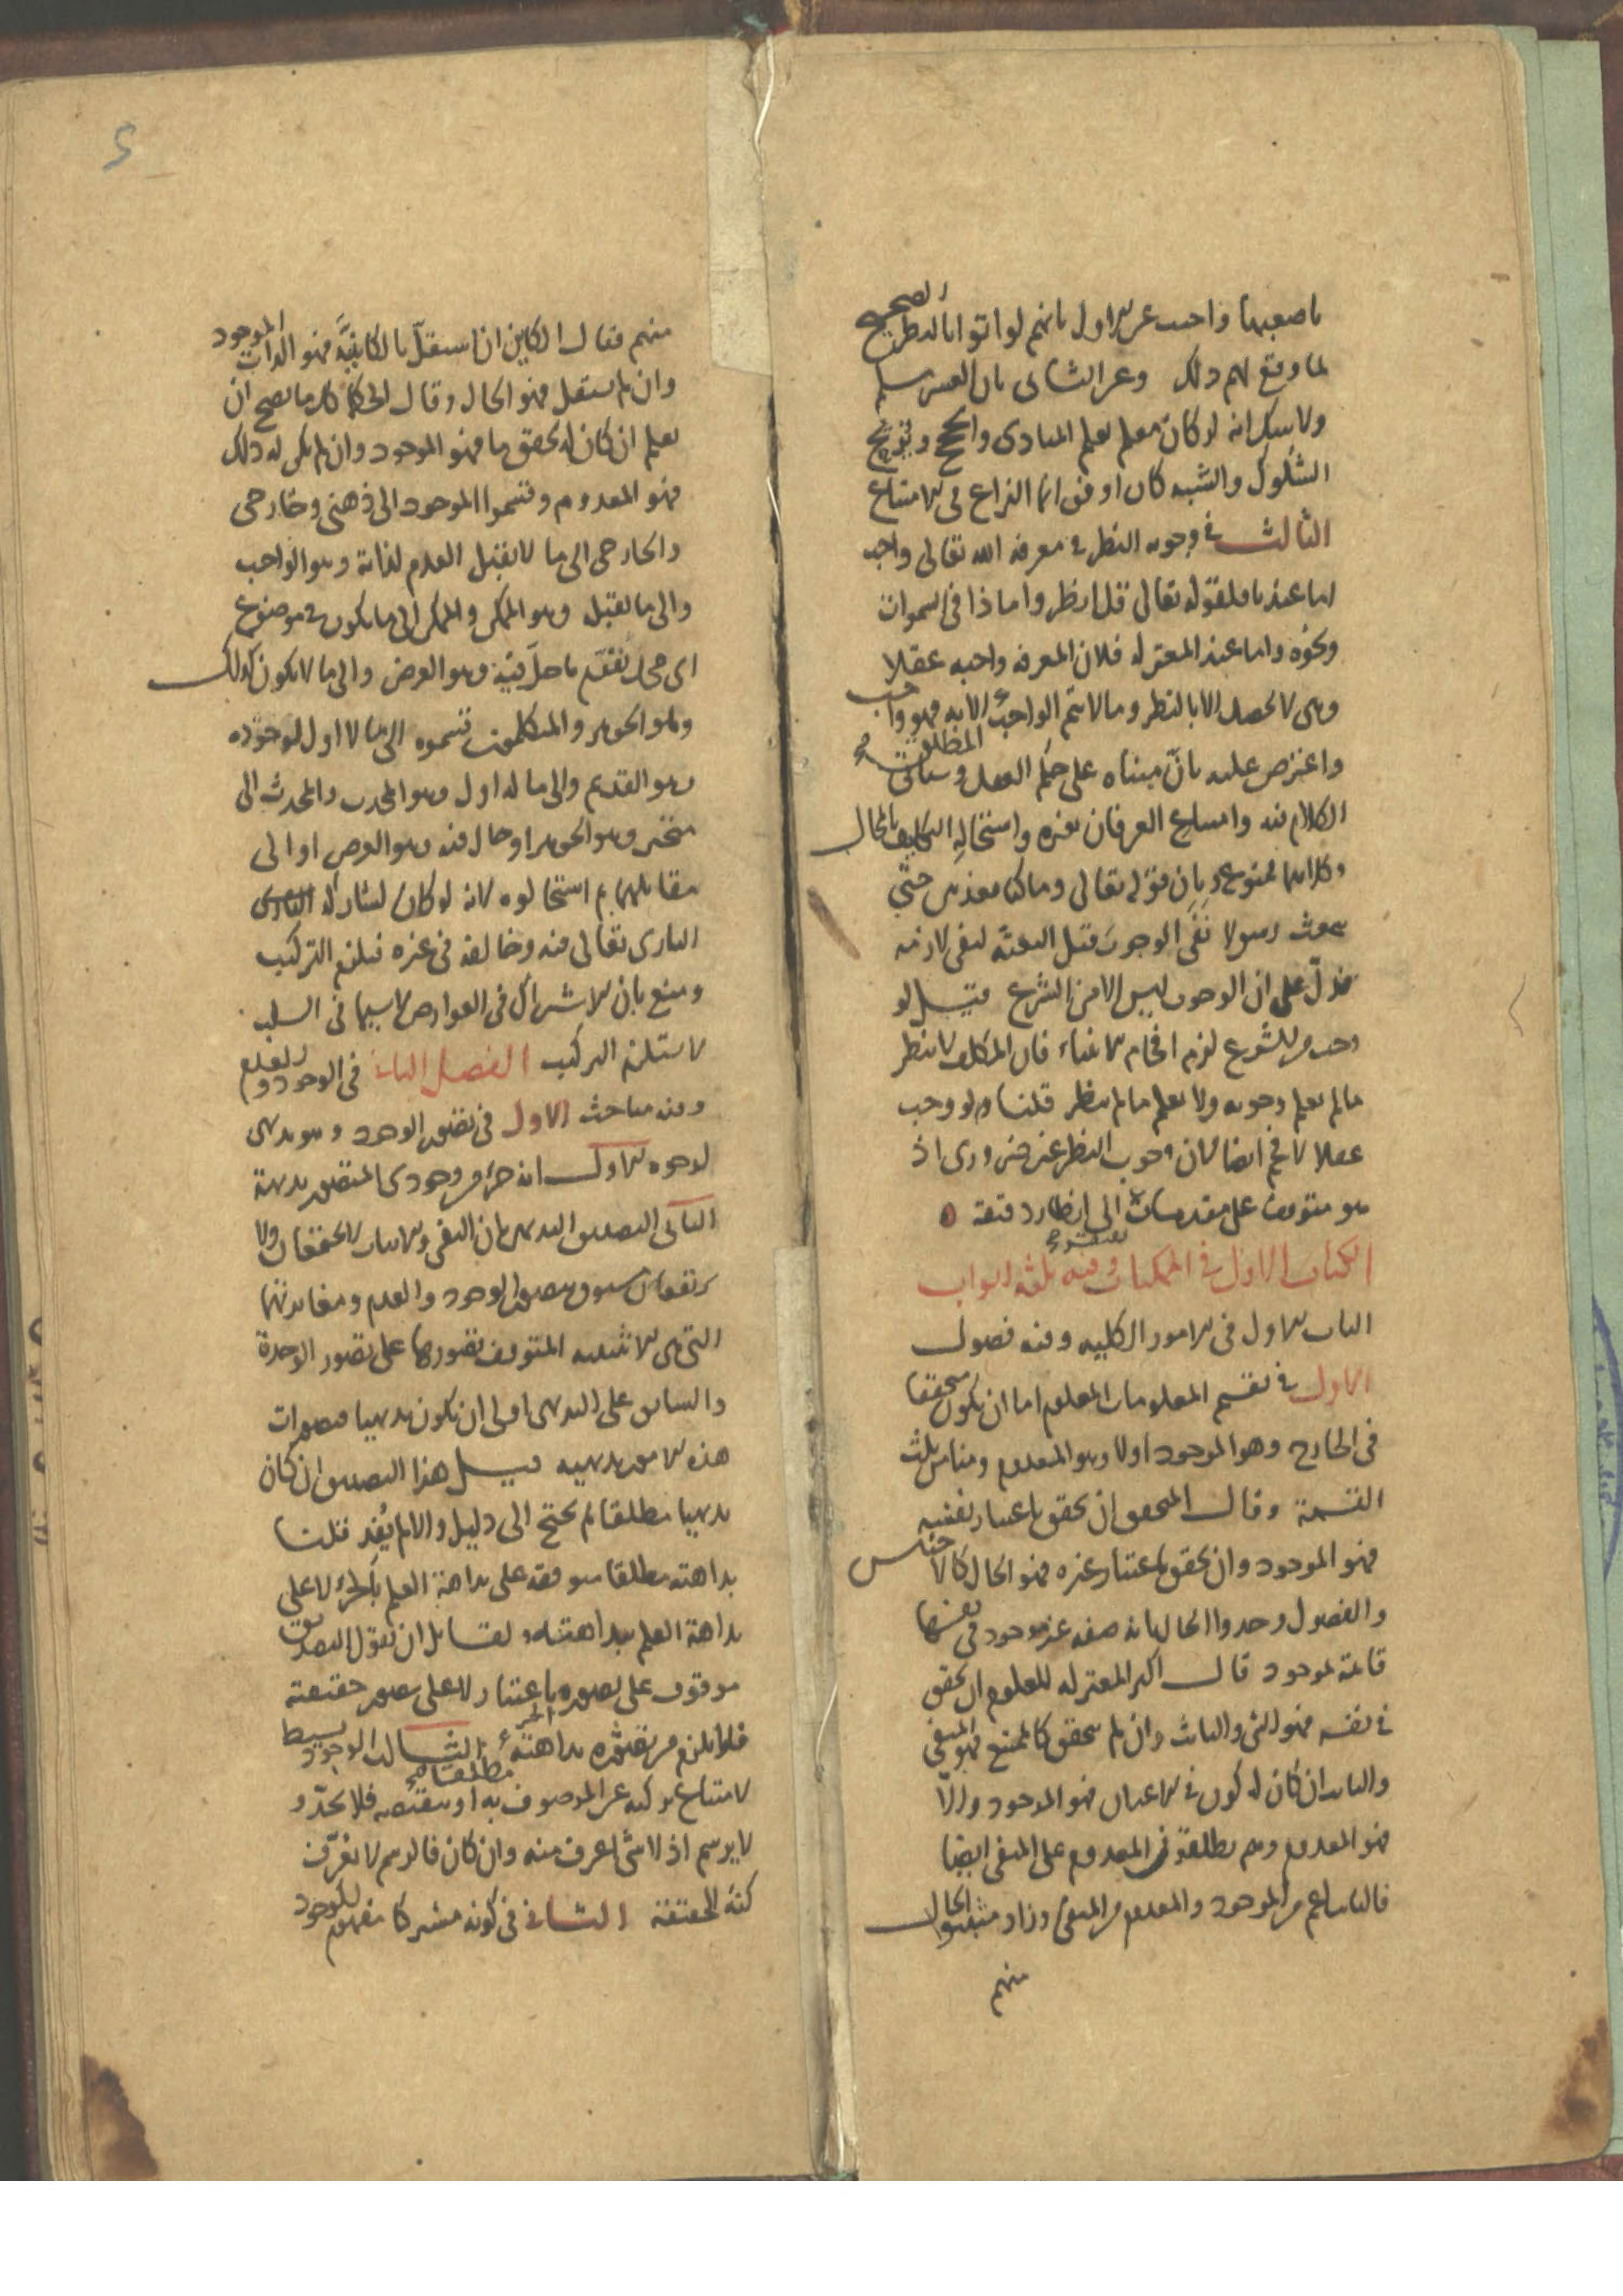 باصعبها واجيب عن الاول بانهم لو اتوا بالنظر الصحيح
لما وقع لهم ذلك وعن الثاني بان العسر مسلم
ولا شك انه لو كان معلم يعلم المبادي والحجج ويزيح
الشكوك والشبه كان اوفق انما النزاع في الامتناع
الثالث في وجوبه النظر في معرفة الله تعالى واجب
اما عندنا فلقوله تعالى قل انظروا ماذا في السموات
ونحوه واما عند المعتزلة فلان المعرفة واجبة عقلا
وهي لا تحصل الا بالنظر وما لا يتم الواجب الا به فهو واجب
واعترض عليه بان مبناه على حكم العقل وسيأتي
الكلام فيه وامتناع العرفان بغيره واستحالة التكليف بالمحال
وكلاهما ممنوع وبان قوله تعالى وما كنا معذبين حتى
نبعث رسولا نفي الوجوب قبل البعثة لنفي لازمه
فدل على ان الوجوب ليس الا من الشرع قيل لو
وجب من الشرع لزم افحام الانبياء فان المكلف لا ينظر
ما لم يعلم وجوبه ولا يعلم ما لم ينظر قلنا ولو وجب
عقلا لافحم ايضا لان وجوب النظر غير ضروري اذ
هو متوقف على مقدمات تفتقر الى انظار دقيقة
الكتاب الاول في الممكنات وفيه ثلثة ابواب
الباب الاول في الامور الكلية وفيه فصول
الاول في تقسيم المعلومات المعلوم اما ان يكون متحققا
في الخارج وهو الموجود اولا وهو المعدوم ومنا من ثلث
القسمة وقال المتحقق ان تحقق باعتبار نفسه
فهو الموجود وان تحقق باعتبار غيره فهو الحال كالاجناس
والفصول وحدوا الحال بانه صفة غير موجود في نفسها
قائمة لموجود قال اكثر المعتزلة المعلوم ان تحقق
في نفسه فهو الشئ والثابت وان لم يتحقق كالممتنع فهو المنفي
والثابت ان كان له كون في الاعيان فهو الموجود والا
فهو المعدوم وهم يطلقون المعدوم على المنفي ايضا
فالثابت اعم من الموجود والمعدوم من المنفي وزاد مثبتوا الحال
منهم
منهم فقال الكاين ان استقل بالكاينية فهو الذات الموجود
وان لم يستقل فهو الحال وقال الحكما كل ما يصح ان
يعلم ان كان له تحقق ما فهو الموجود وان لم يكن له ذلك
فهو المعدوم وقسموا الموجود الى ذهني وخارجي
والخارجي الى ما لا يقبل العدم لذاته وهو الواجب
والى ما يقبله وهو الممكن والممكن الى ما يكون في موضوع
اي محل يقوم ما حل فيه وهو العرض والى ما لا يكون كذلك
وهو الجوهر والمتكلمون قسموه الى ما لا اول لوجوده
وهو القديم والى ما له اول وهو المحدث والمحدث الى
متحيز وهو الجوهر او حال فيه وهو العرض او الى
مقابلهما ثم استحالوه لانه لو كان لشاركه
الباري تعالى فيه وخالفه في غيره فيلزم التركيب
ومنع بان الاشتراك في العوارض لا سيما في السلب
لا يستلزم التركيب الفصل الثاني في الوجود والعدم
وفيه مباحث الاول في تصور الوجود وهو بديهي
لوجوه الاول انه جزء من وجودي المتصور بديهة
الثاني التصديق البديهي بان النفي والاثبات لا يجتمعان ولا
يرتفعان مسبوق بتصور الوجود والعدم ومغايرتهما
التي هي الاثنينية المتوقف تصورها على تصور الوحدة
والسابق على البديهي اولى ان يكون بديهيا فتصورات
هذه الامور بديهية قيل هذا التصديق ان كان
بديهيا مطلقا لم يحتج الى دليل والا لم يفد قلنا
بداهته مطلقا متوقفة على بداهة العلم بالجزء لا على
بداهة العلم ببداهته ولقائل ان يقول التصديق
موقوف على تصوره باعتبار لا على تصور حقيقته
فلا يلزم من تصوره بداهته الثالث الوجود بسيط
لامتناع تركبه عن الموصوف به او بنقيضه فلا يحد و
لا يرسم اذ لا شئ اعرف منه وان كان فالرسم لا يعرف
كنه الحقيقة الثاني في كونه مشتركا مفهوم الوجود